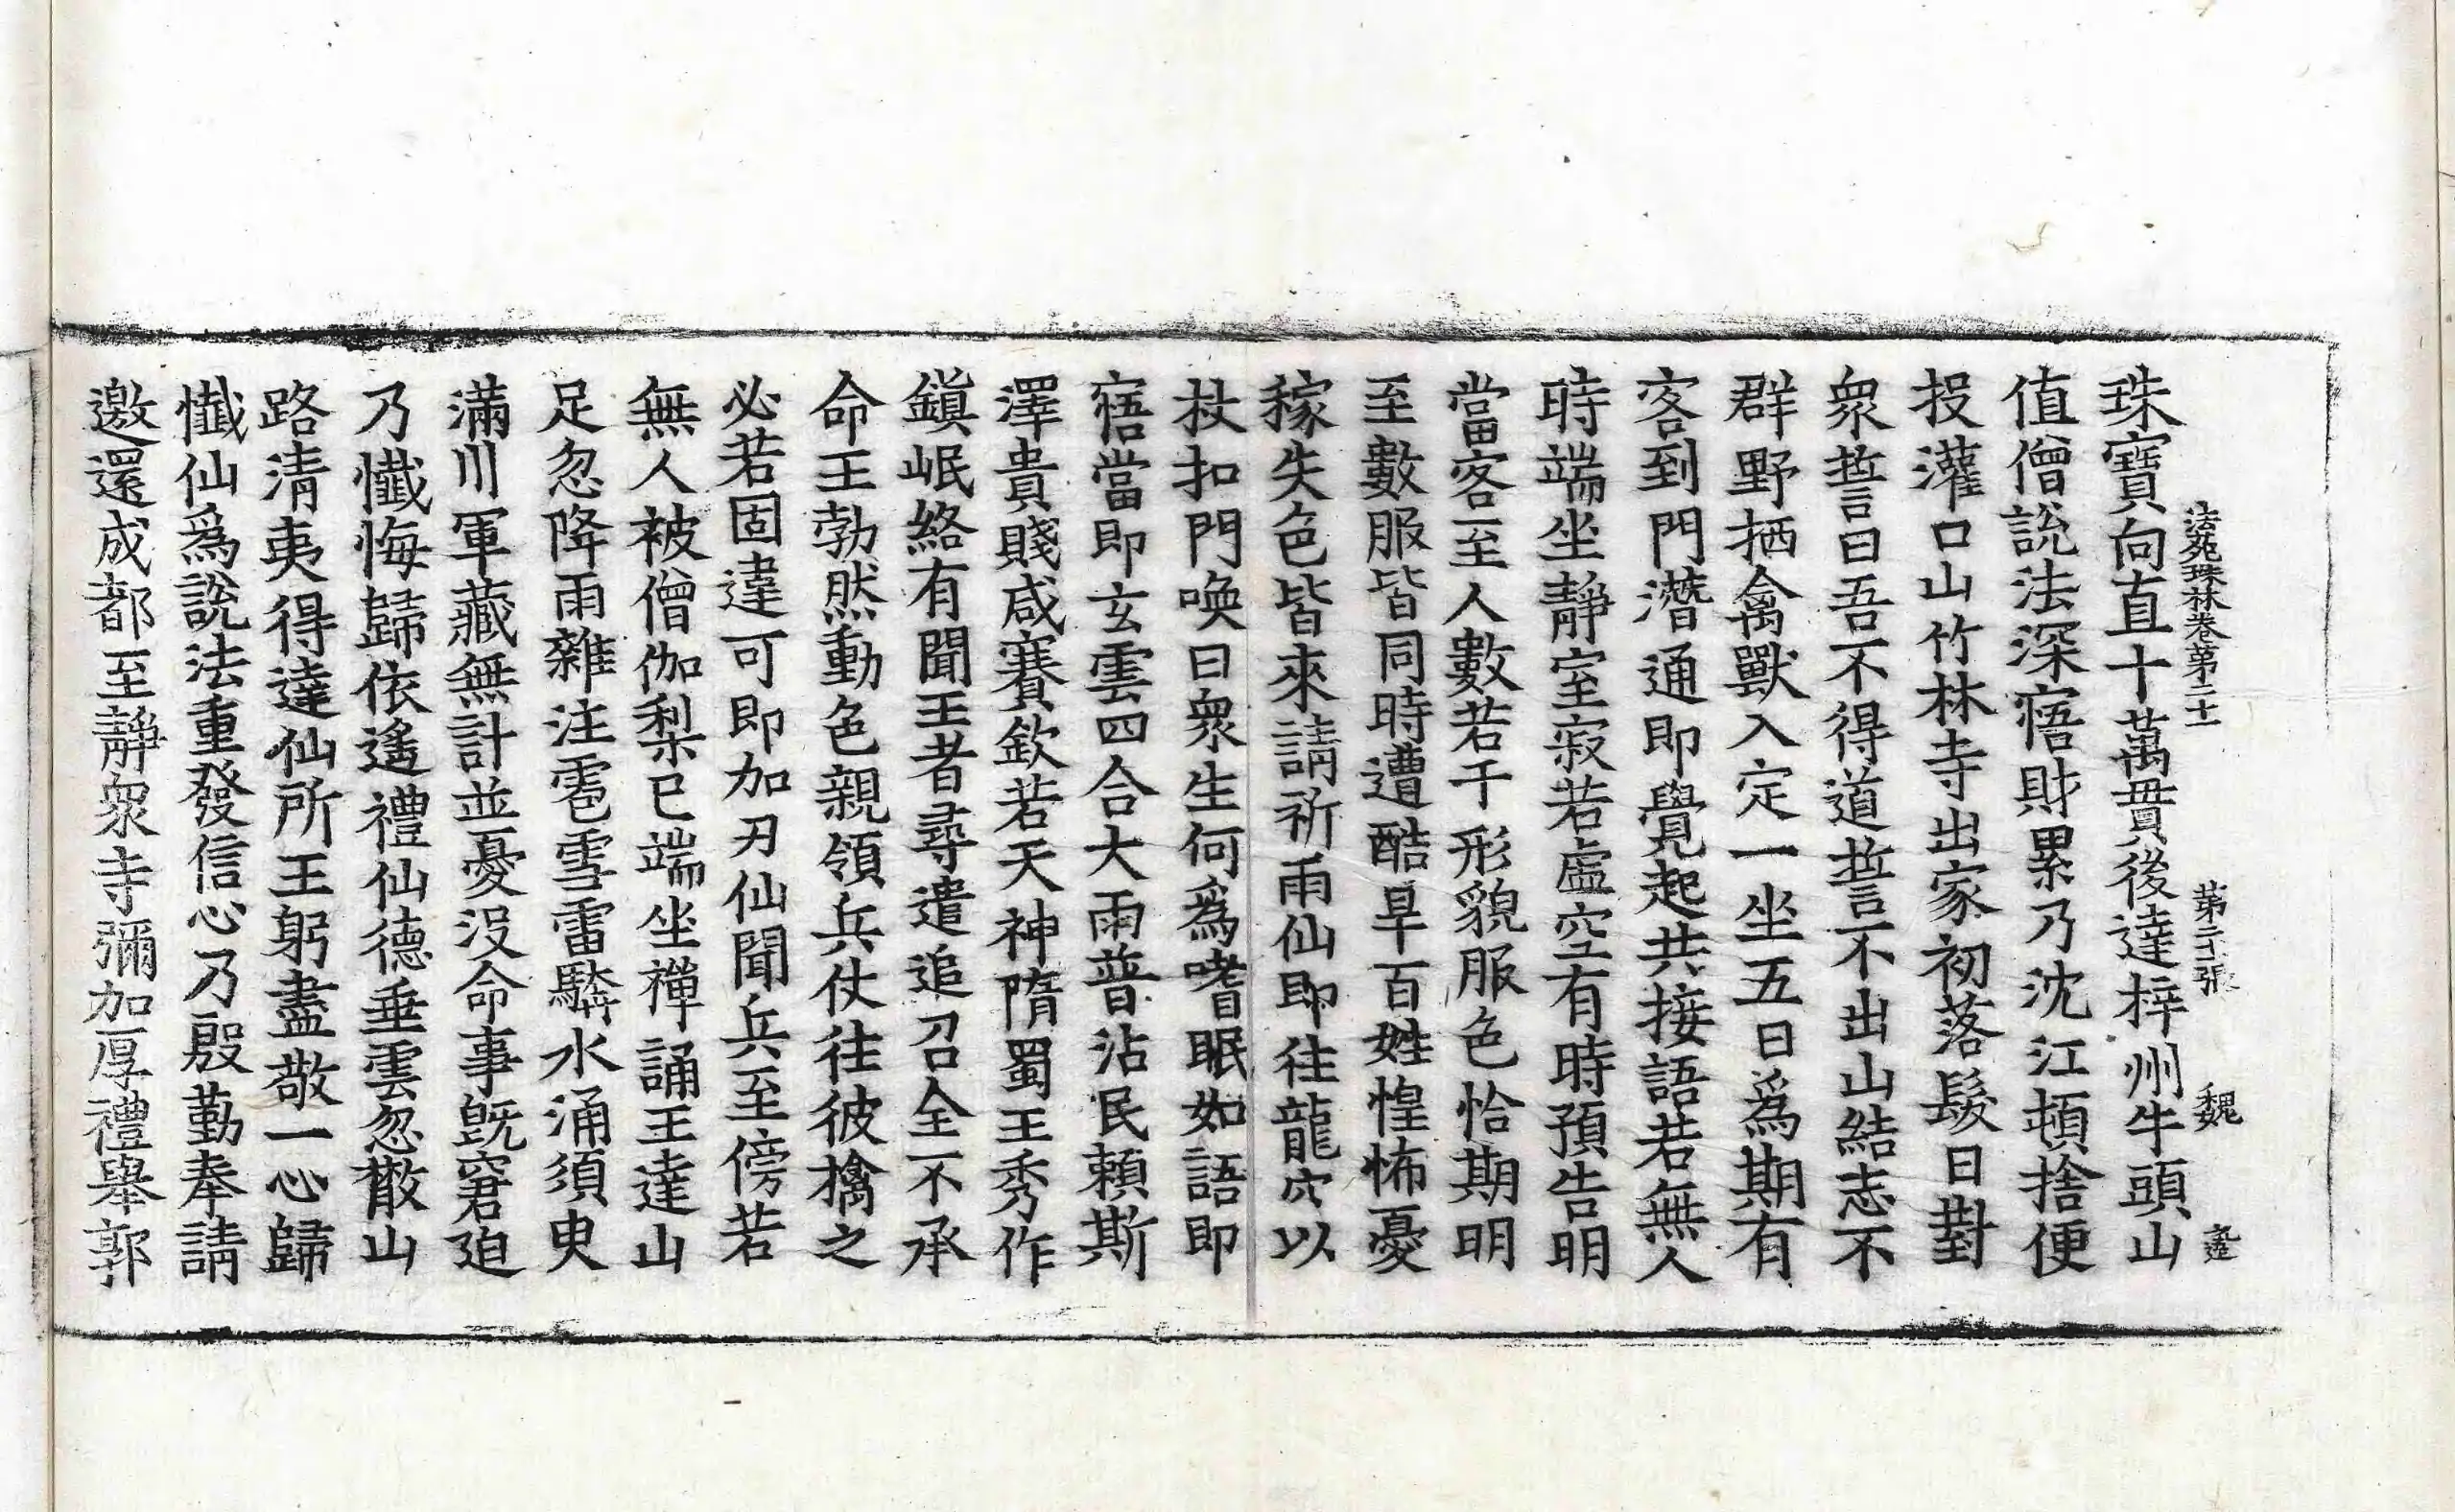 法苑珠林卷第二十 第二十張 魏
珠寶向直十萬貫後達梓州牛頭山
值僧說法深悟財累乃沈江頓捨便
投灌口山竹林寺出家初落髮日對
衆誓曰吾不得道誓不出山結志不
群野栖禽獸入定一坐五日爲期有
客到門潛通即覺起共接語若無人
時端坐靜室寂若虛空有時預告明
當客至人數若干形貌服色恰期明
至數服皆同時遭酷旱百姓惶怖憂
稼失色皆來請祈雨仙即往龍穴以
杖扣門喚曰衆生何爲嗜眠如語即
寤當即玄雲四合大雨普沾民賴斯
澤貴賤咸賽欽若天神隋蜀王秀作
鎮岷絡有聞王者尋遣追召全不承
命王勃然動色親領兵仗往彼擒之
必若固違可即加刃仙聞兵至傍若
無人被僧伽梨已端坐禪誦王達山
足忽降雨雜注雹雪雷驎水涌須臾
滿川軍藏無計並憂沒命事旣窘迫
乃懺悔歸依遙禮仙德垂雲忽散山
路清夷得達仙所王躬盡敬一心歸
懺仙爲說法重發信心乃殷勤奉請
邀還成都至靜衆寺彌加厚禮舉郭